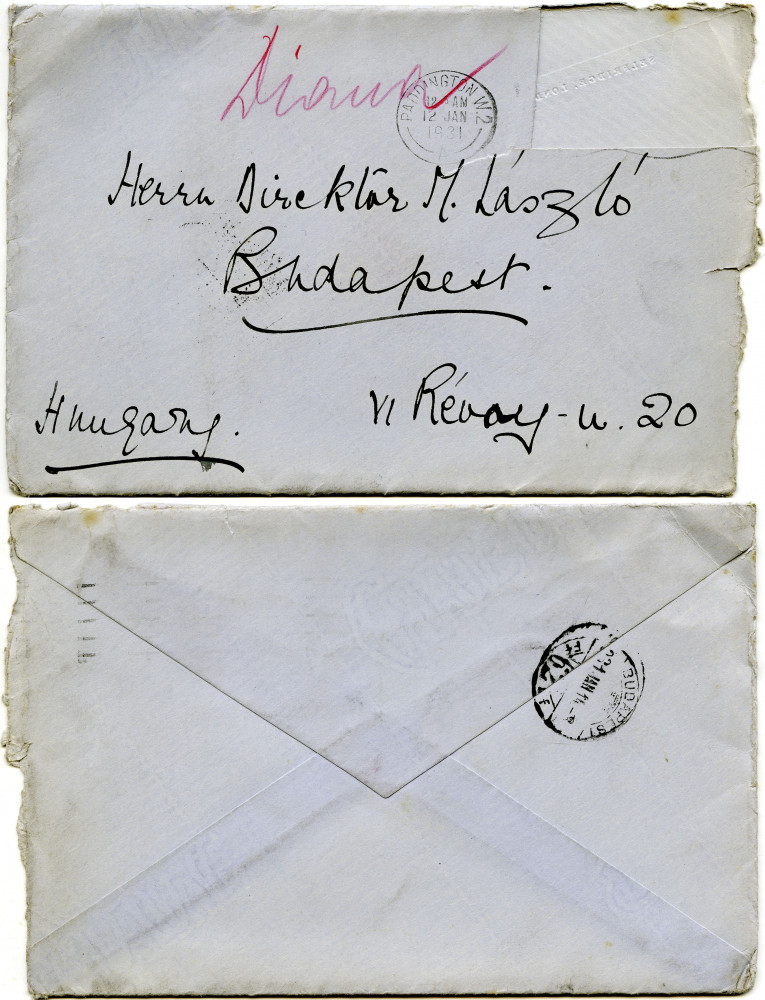 Diana
PADDINGTON. W.2
12 AM
12 JAN
1931
A
Herrn Direktör M. László
Budapest.
VI Révay-u. 20
Hungary.
BUDAPEST
931 JAN 14